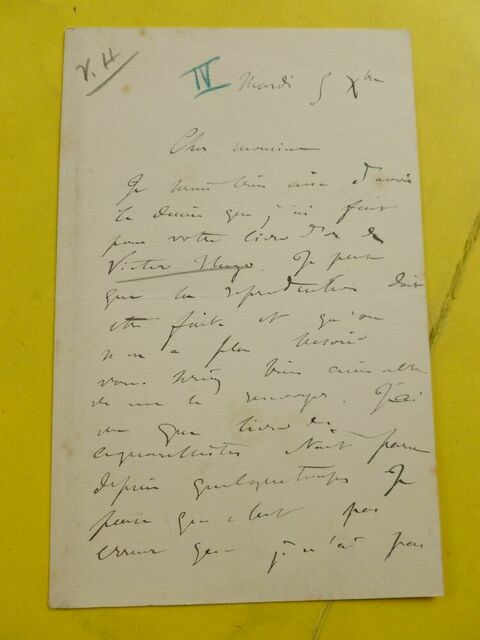 V. H
IV Mardi 5 Xbre
Cher monsieur
Je serais bien aise d'avoir
le dessin que j'ai fait
pour votre livre d'or de
Victor Hugo. Je pense
que la reproduction doit
être faite et qu'on
n'en a plus besoin
vous seriez bien aimable
de me le renvoyer. J'ai
vu que livre des
aquarellistes était paru
depuis quelque temps Je
pense que c'est par
erreur que je n'ai pas